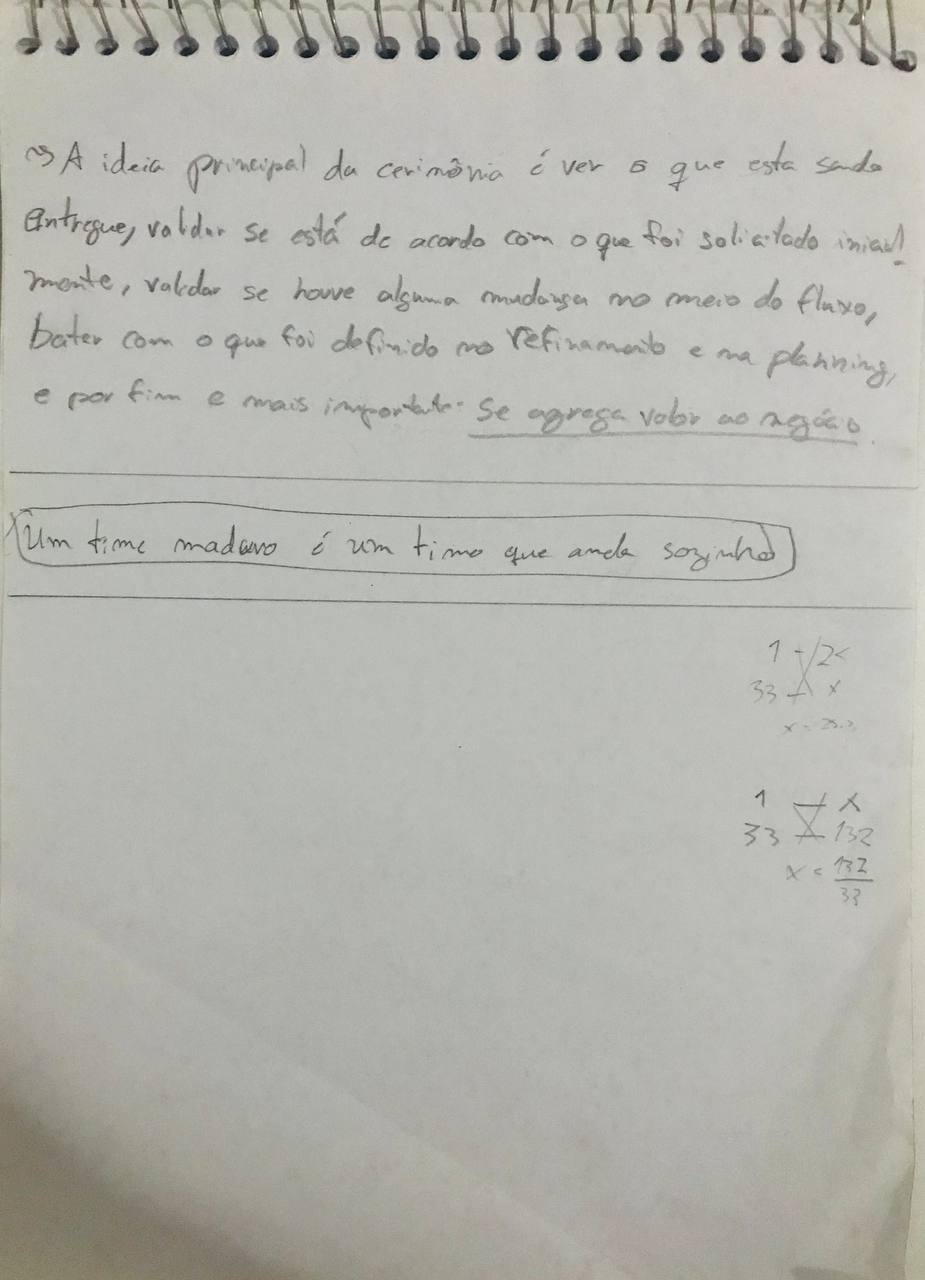 ~> A ideia principal da cerimônia é ver o que esta sendo
entregue, validar se está de acordo com o que foi solicitado inicial
mente, validar se houve alguma mudança no meio do fluxo,
bater com o que foi definido no refinamento e na planning,
e por fim e mais importante: Se agrega valor ao negócio.
Um time maduro é um time que anda sozinho
1 - 2
33 - x
x =
1 - x
33 - 132
x = 132
33